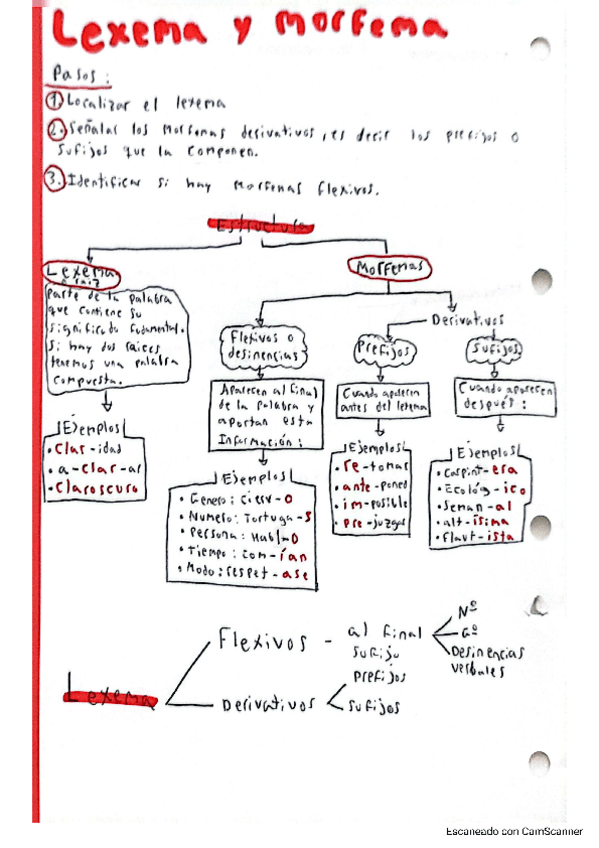 Lexema y morfema
Pasos:
1. Localizar el lexema
2. Señalar los morfemas derivativos, es decir los prefijos o
sufijos que la componen.
3. Identificar si hay morfemas flexivos.
Estructura
Lexema
o raíz
Parte de la palabra
que contiene su
significado fudamental.
Si hay dos raices
tenemos una palabra
compuesta.
Ejemplos
• Clar-idad
• a-clar-ar
• Claroscuro
Morfemas
Flexivos o
desinencias
Aparecen al final
de la palabra y
aportan esta
Información:
Ejemplos
• Genero: Cierv-o
• Numero: Tortuga-s
• Persona: Habl-o
• Tiempo: com-ían
• Modo: respet-ase
Derivativos
Prefijos
Cuando aparecen
antes del lexema
Ejemplos
• re-tomar
• ante-poner
• im-posible
• pre-juzgar
Sufijos
Cuando aparecen
después:
Ejemplos
• Carpint-era
• Ecológ-ico
• Seman-al
• alt-ísima
• flaut-ista
Lexema
Flexivos - al final
sufijo
Nº
Gº
Desinencias
verbales
Derivativos
prefijos
sufijos
Escaneado con CamScanner